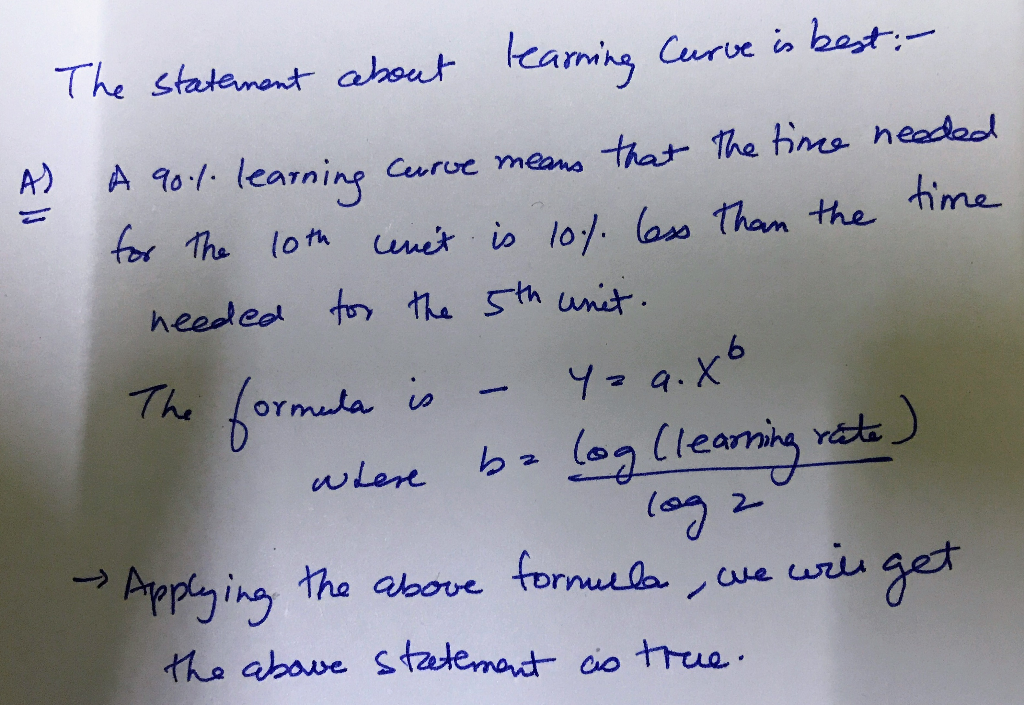 The statement about learning Curve is best:-
A) A 90%. learning curve means that the time needed
for the 10th unit is 10%. less than the time
needed for the 5th unit.
The formula is - Y = a.X^b
where b = log (learning rate)
log 2
→ Applying the above formula, we will get
the above statement as true.